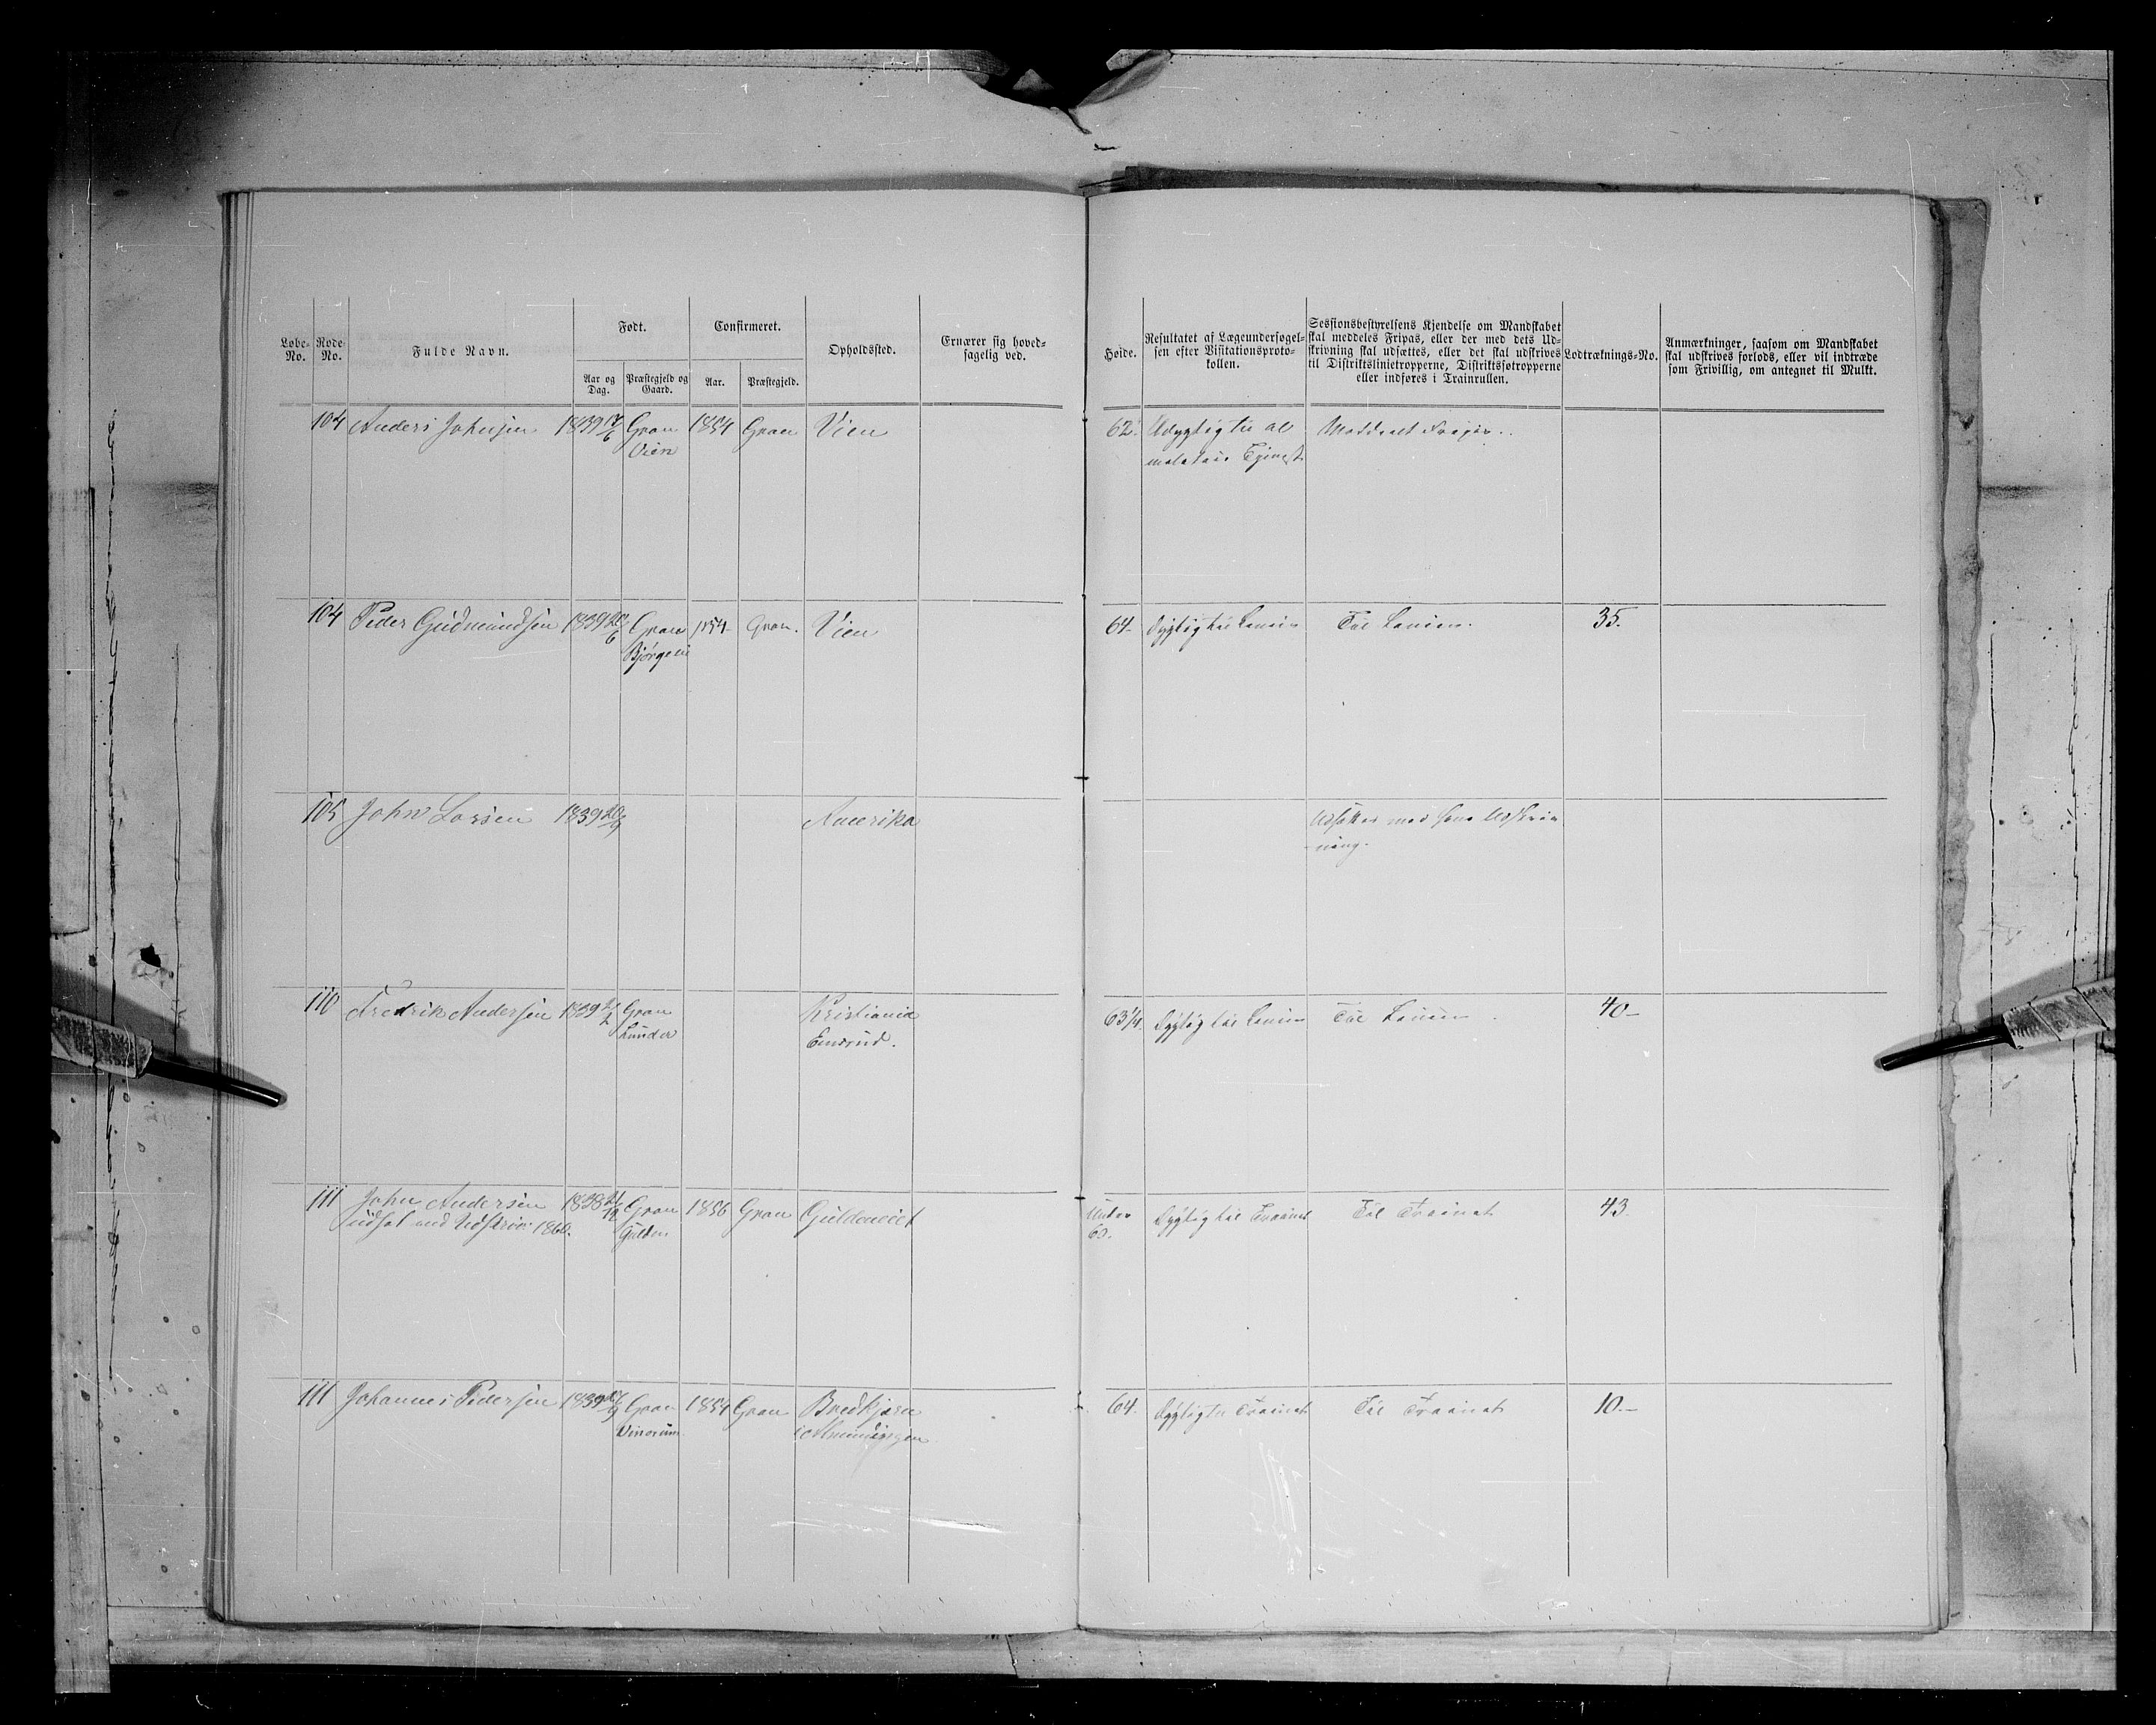 Løbe-No. Rode-No. Fulde Navn. Født. Confirmeret. Opholdssted. Ernærer sig hoved-sagelig ved.
Aar og Dag. Præstegjeld og Gaard. Aar. Præstegjeld.
Høide. Resultatet af Lægeundersøgel-sen efter Visitationsproto-kollen. Sessionsbestyrelsens Kjendelse om Mandskabet skal meddeles Fripas, eller der med dets Ud-skrivning skal udsættes, eller det skal udskrives til Distriktslinietropperne, Distriktssøtropperne eller indføres i Trainrullen. Lodtræknings-No. Anmærkninger, saasom om Mandskabet skal udskrives forlods, eller vil indtræde som Frivillig, om antegnet til Mulkt.
104 Anders Johnsen 1839 Gran 1854 Gran Vien 62 Udygtig til al Meddeelt Fripas.
Vien Tjenest
104 Peder Gudmundsen 1839 Gran 1854 Gran. Vien 64 Dygtig til Linien Til Linien. 35.
Bjørge
105 John Larsen 1839 Amerika Udsættes med hans Udskriv
-ning.
110 Fredrik Andersen 1839 Gran Kristiania 63 1/4 Dygtig til Linien Til Linien 40
Lunder
111 John Andersen 1838 Gran 1856 Gran Guldeneiet Under Dygtig til Trainet Til Trainet 43.
udsat med Udskriv: 1860. Gulden 60.
111 Johannes Pedersen 1839 Gran 1854 Gran Bredkjern 64. Dygtig til Trainet Til Trainet 10.
i Almindingen